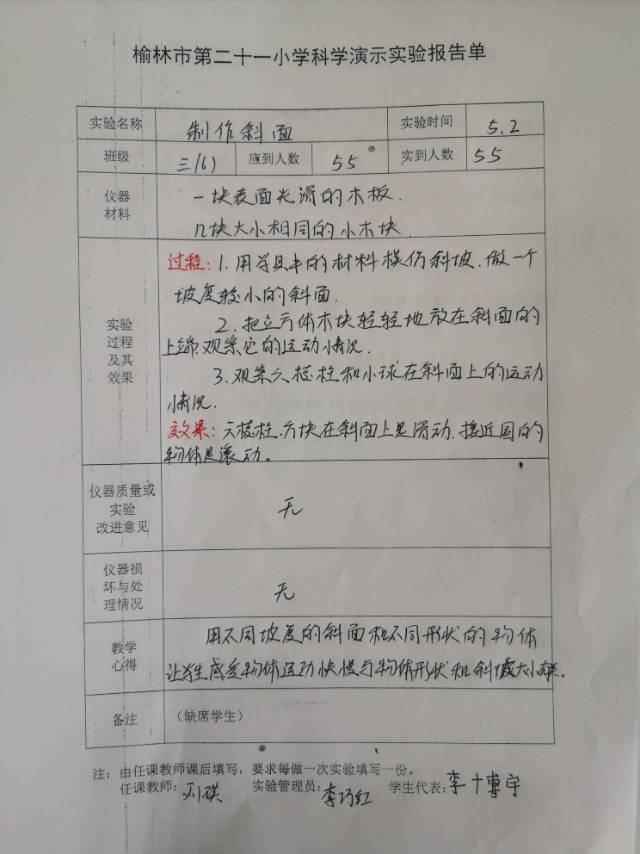 榆林市第二十一小学科学演示实验报告单
实验名称 制作斜面 实验时间 5.2
班级 三(6) 应到人数 55 实到人数 55
仪器 一块表面光滑的木板.
材料 几块大小相同的小木块.
过程: 1. 用学具中的材料模仿斜坡.做一个
坡度较小的斜面.
实验 2. 把立方体木块轻轻地放在斜面的
过程 上端.观察它的运动情况.
及其 3. 观察六棱柱和小球在斜面上的运动
效果 情况.
效果: 六棱柱.方块在斜面上是滑动.接近圆的
物体是滚动。
仪器质量或
实验 无
改进意见
仪器损
坏与处 无
理情况
教学 用不同坡度的斜面和不同形状的物体
心得 让学生感受物体运动快慢与物体形状和斜坡度大小有关.
备注 (缺席学生)
注: 由任课教师课后填写,要求每做一次实验填写一份。
任课教师: 刘瑛 实验管理员: 李巧红 学生代表: 李